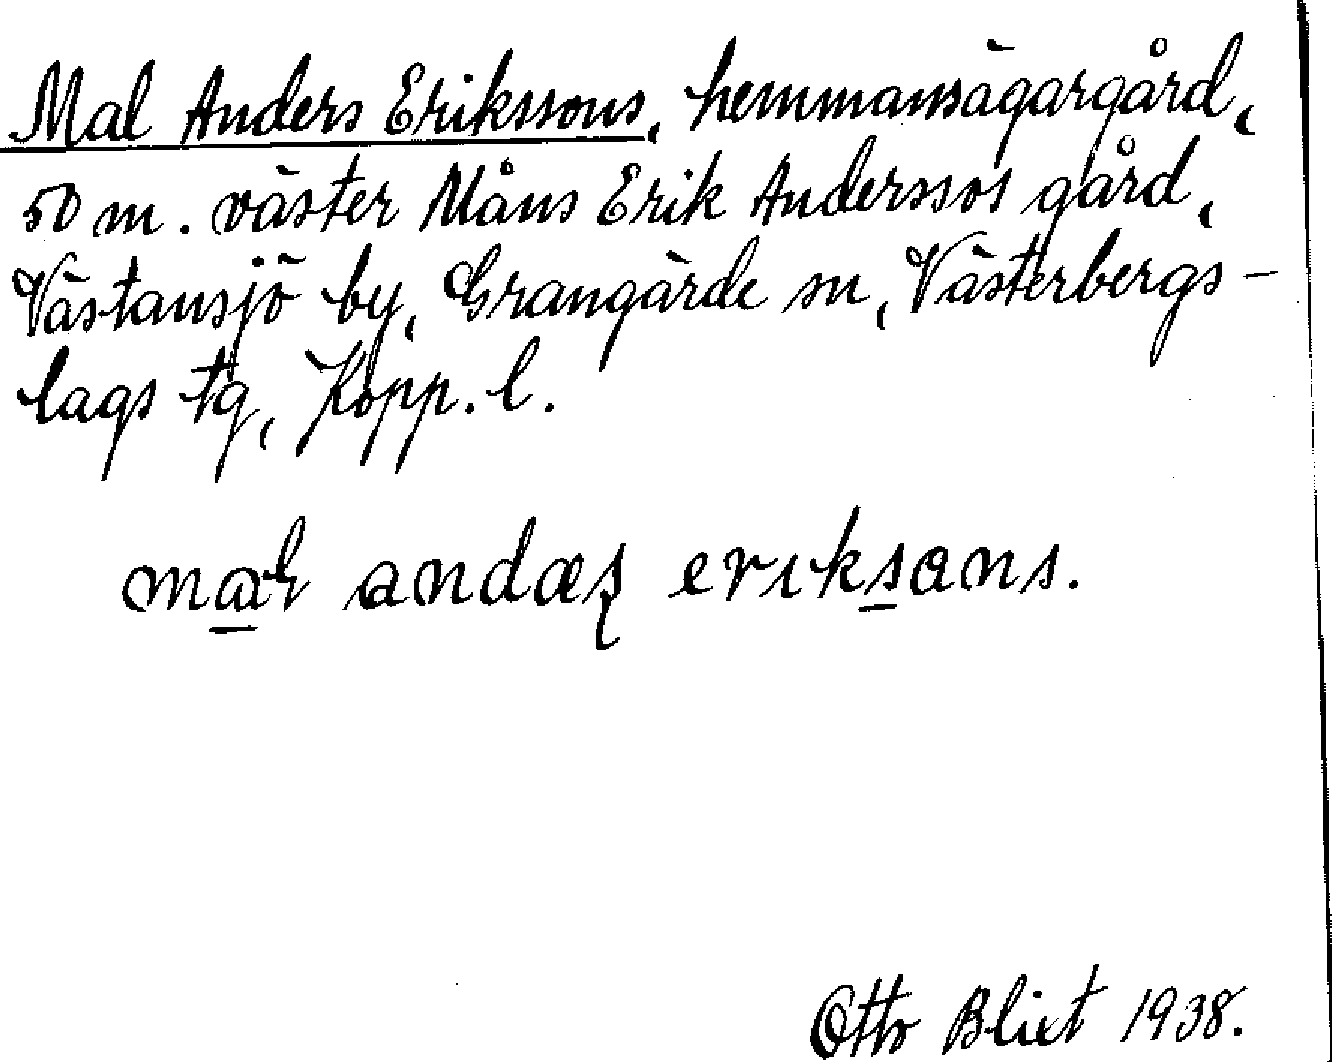 Mal Anders Erikssons, hemmansägargård,
50 m. väster Måns Erik Anderssos gård,
Västansjö by, Grangärde sn, Västerbergs-
lags tg, Kopp. l.
maɫ andæʂ erıksans.
Otto Blixt 1938.